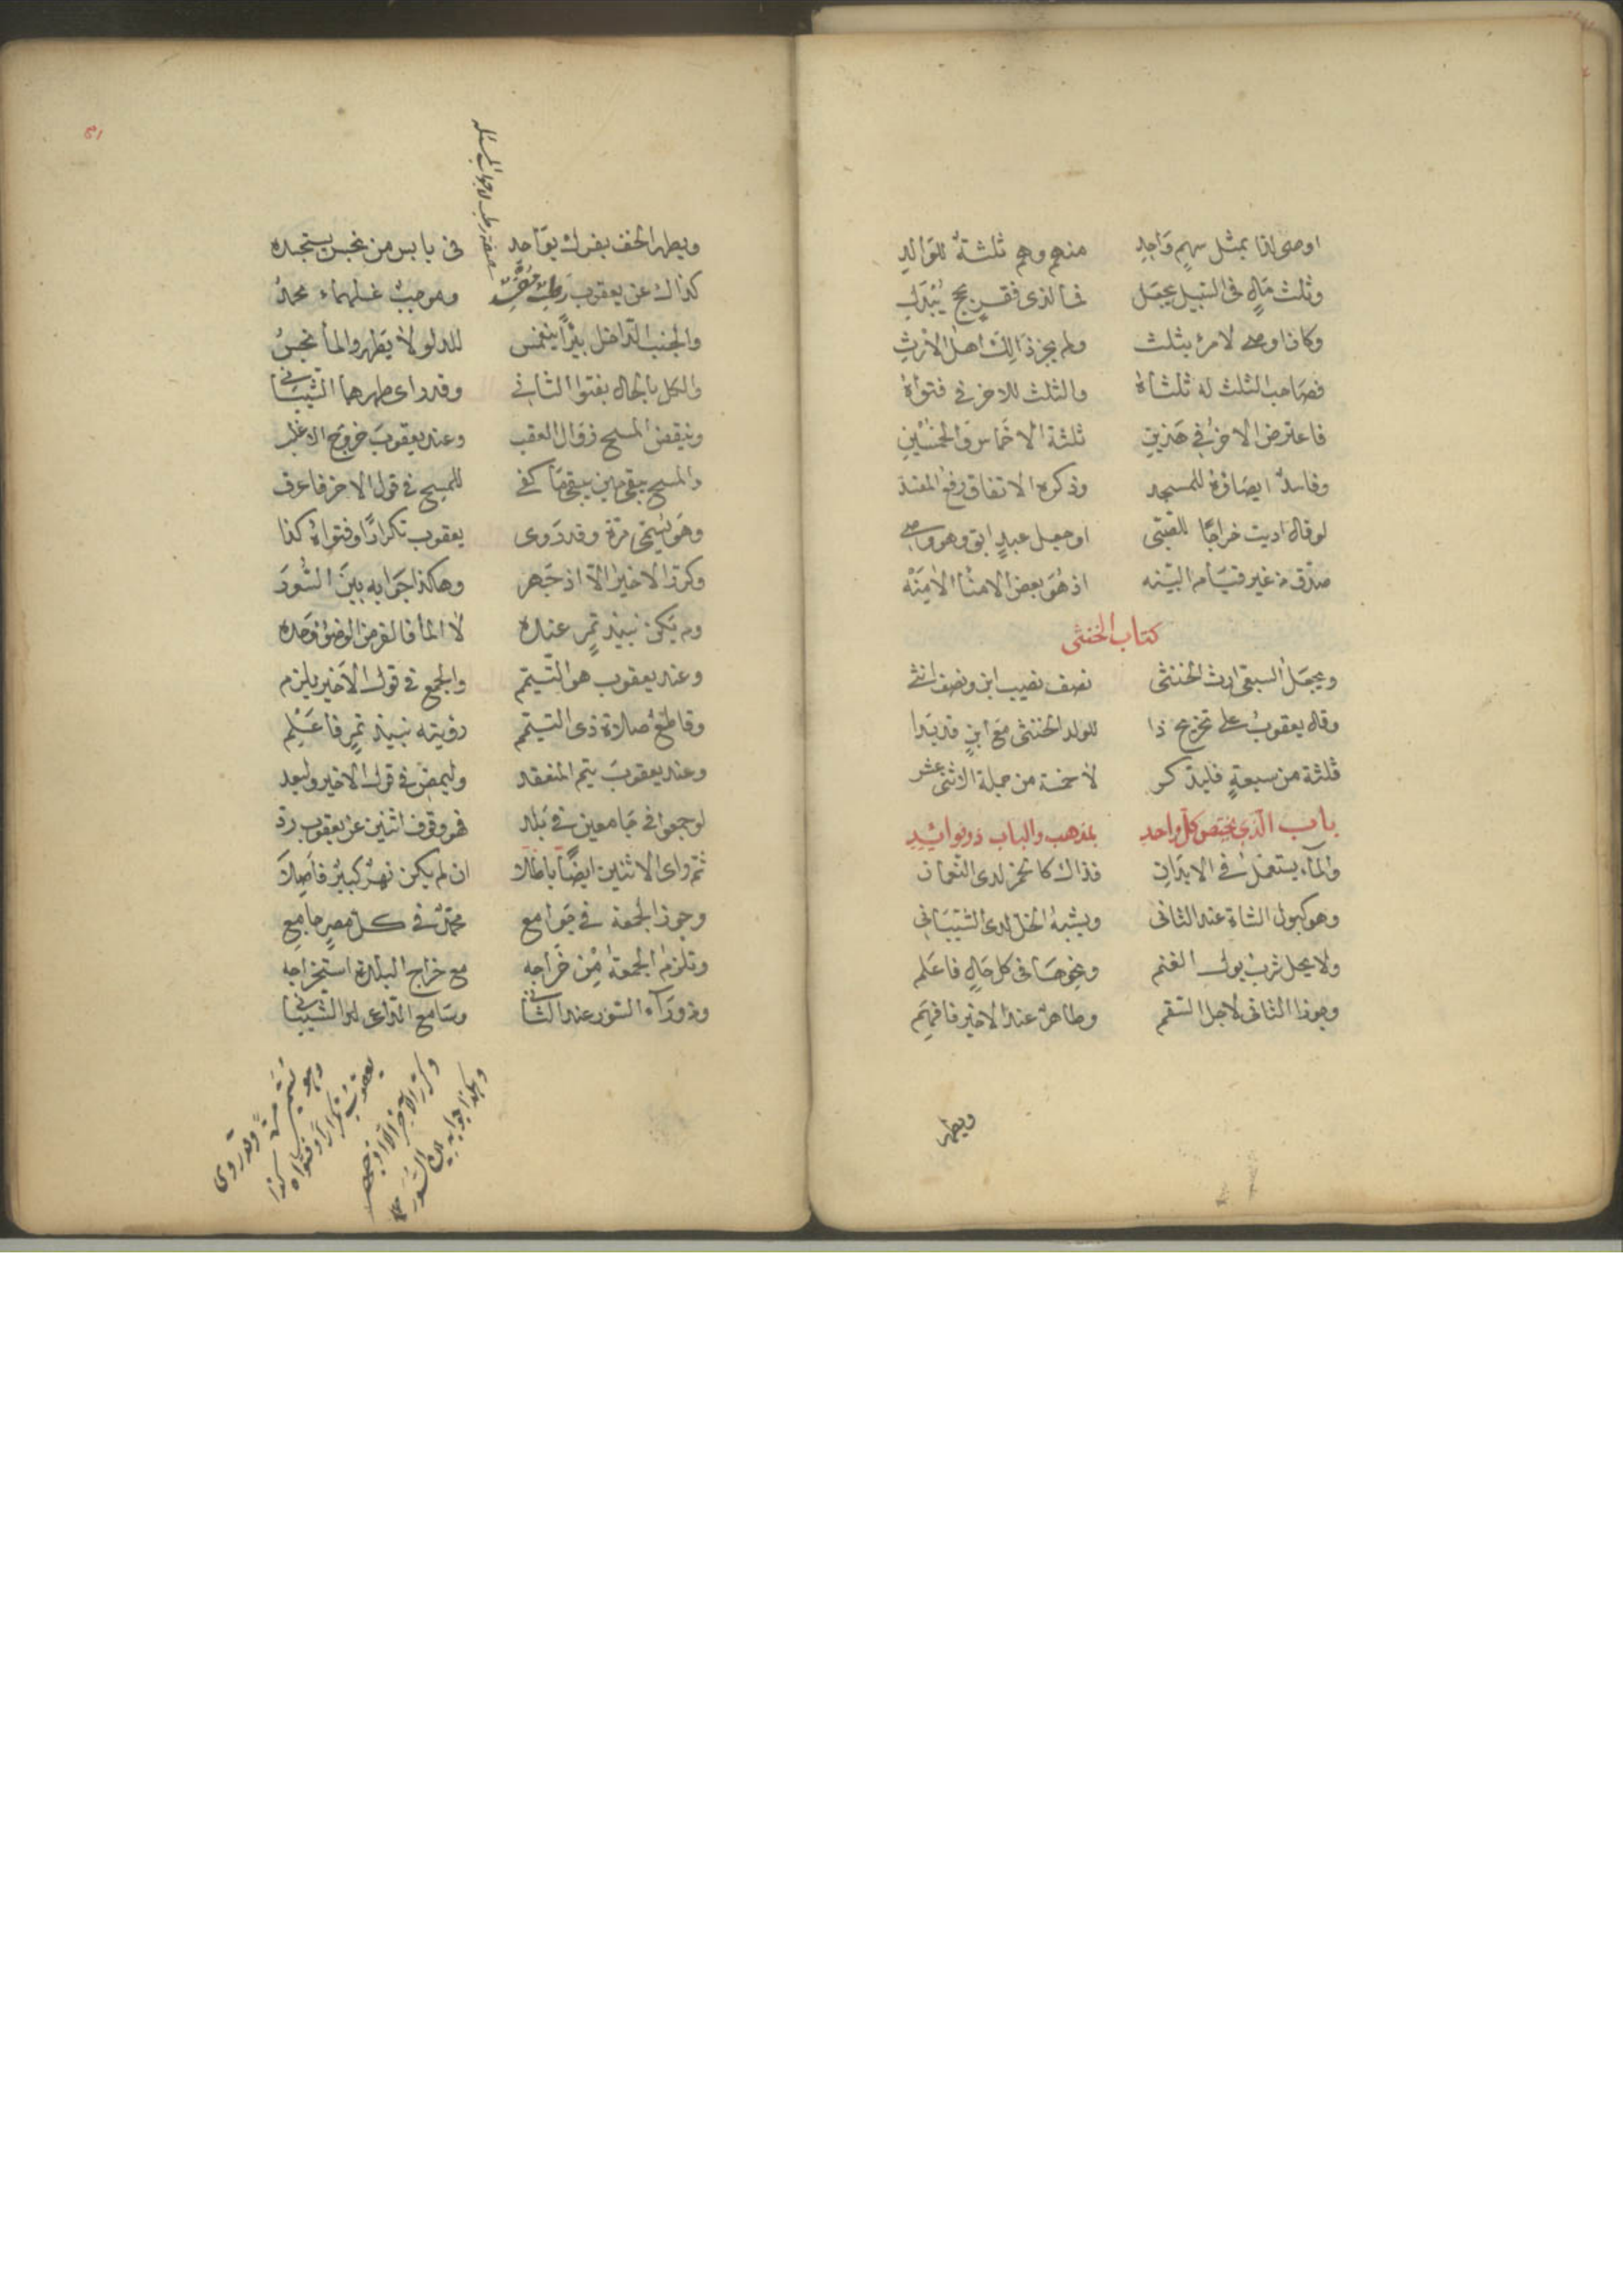 اوصى لذا بمثل سهم واحد منهم وهم ثلثة للوالد
وثلث مال في السبيل يجعل في الذي فقر بحج يبدل
وكان اوصى لامرء بثلث ولم يجز ذالك اهل الارث
فصاحب الثلث له ثلثاه والثلث للاخر في فتواه
فاعترض الاخر في هذين ثلثة الاخماس والخمسين
وفاسد ايصاؤه للمسجد وذكره الانفاق رفع المفسد
لو قال اديت خراجا للفتى او جعل عبد ابق وهو وصي
صدق من غير قيام البينه اذ هو بعض الامنا الامينه
كتاب الخنثى
ويجعل السبقى ارث الخنثى نصف نصيب ابن ونصف انثى
وقال يعقوب على تخريج ذا للولد الخنثى مع ابن قد بدا
ثلثة من سبعة فليذكر لا خمسة من جملة الاثنى عشر
باب الذي يختص كل واحد بمذهب والباب ذو فوائد
والماء يستعمل في الابدان فذاك كالخمر لدى النعمان
وهو كبول الشاة عند الثاني ويشبه الخل لدى الشيباني
ولا يحل شرب بول الغنم ونحوها في كل حال فاعلم
وجوز الثاني لاجل السقم وطاهر عند الاخير فافهم
ويطهر
ويطهر الخف بفرك بواحد في يابس من نجس يستجده
كذاك عن يعقوب رطب وموجب غسلهما محمد
والجنب الداخل بئرا ينغمس للدلو لا يطهر والماء نجس
والكل بالحال بفتوا الثاني وقد راى طهرهما الشيباني
وينقض المسح زوال العقب وعند يعقوب خروج الاغلب
والمسح يبقى حين يبقى ما كفى للمسح في قول الاخر فاعرف
وهو يسمى مرة وقد روى يعقوب تكرارا وفتواه كذا
وكرر الاخير الا اذ جهر وهاكذا جوابه بين السور
ولم يكن نبيذ تمر عنده لا الماء فالفرض الوضوء وحده
وعند يعقوب هو التيمم والجمع في قول الاخير يلزم
وقاطع صلاة ذى التيمم رؤيته نبيذ تمر فاعلم
وعند يعقوب يتم المنعقد وليمض في قول الاخير وليعد
لو جمعوا في جامعين في بلد فهو وقوف اثنين عن يعقوب رد
ثم راى الاثنين ايضا باطلا ان لم يكن نهر كبير فاصلا
وجوز الجمعة في جوامع محمد في كل مصر جامع
وتلزم الجمعة من خراجه مع خراج البلدة استخراجه
وذو وراء السور عند الثاني وسامع الداعي لدا الشيباني
وهو يسمى مرة وقد روى
يعقوب تكرارا وفتواه كذا
وكرر الاخير الا اذ جهر
وهكذا جوابه بين السور